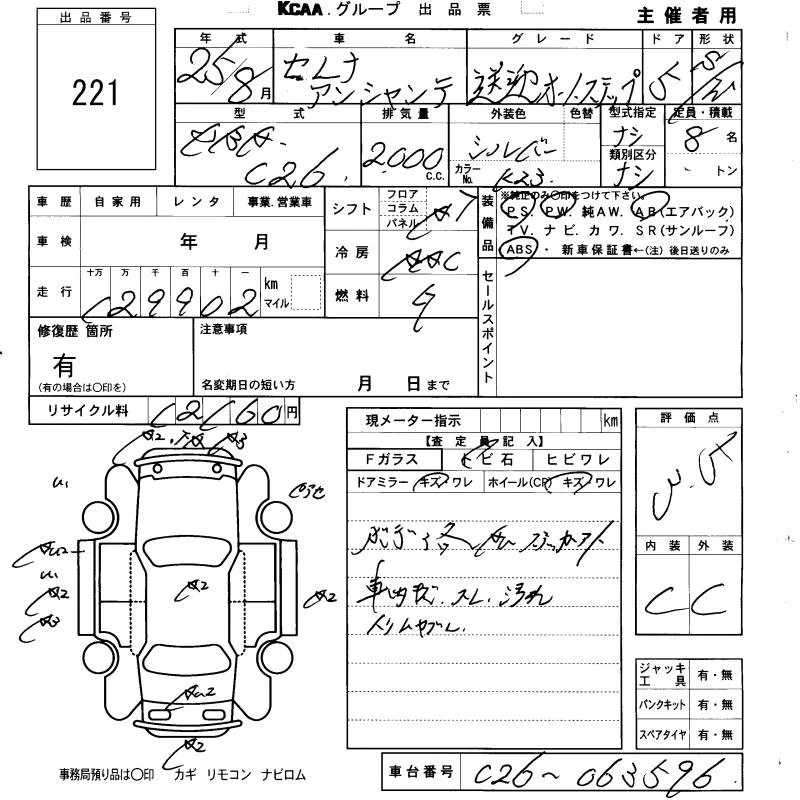 KCAA.グループ 出品票
主催者用
出品番号
221
年式 車名 グレード ドア 形状
25/8月 セレナ 送迎オートステップ 5
アンシャンテ
型式 排気量 外装色 色替 型式指定 定員・積載
C26 2000 C.C. シルバー ナシ 8名
カラーNo. K23 類別区分 ナシ トン
車歴 自家用 レンタ 事業.営業車
車検 年 月
走行 十万 万 千 百 十 一 km マイル
129902
シフト フロア コラム パネル AT
冷房 AAC
燃料 ガ
装備品
※純正のみ〇印をつけて下さい。
PS. PW. 純AW. AB(エアバック)
TV. ナビ. カワ. SR(サンルーフ)
ABS ・ 新車保証書←(注) 後日送りのみ
セールスポイント
修復歴 箇所
有
(有の場合は〇印を)
注意事項
名変期日の短い方 月 日まで
リサイクル料 12160円
現メーター指示 km
【査定員記入】
Fガラス トビ石 ヒビワレ
ドアミラー キズ ワレ ホイール(CP) キズ ワレ
車内キズ.スレ.汚れ
評価点
3.5
内装 外装
C C
A2
A3
A2
A2
A2
A3
A2
A2
ジャッキ工具 有・無
パンクキット 有・無
スペアタイヤ 有・無
事務局預り品は〇印 カギ リモコン ナビロム
車台番号 C26~063596